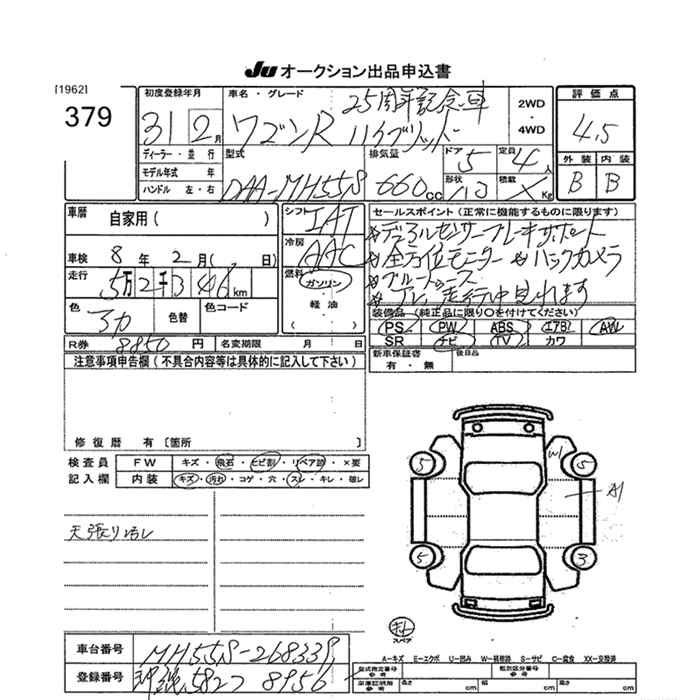 JU オークション出品申込書
[1962]
379
初度登録年月
31 2月
車名・グレード
25周年記念車
ワゴンR ハイブリッド
2WD
・
4WD
評価点
4.5
ディーラー・並行
モデル年式 年
ハンドル 左・右
型式
DAA-MH55S
排気量
660cc
ドア
5
定員
4人
形状
積載
X Kg
外装 内装
B B
車歴
自家用( )
車検 8年 2月( 日)
走行 5万2千3 km
色
色替
色コード
シフト
IAT
冷房
AAC
燃料
ガソリン
・
軽油
( )
セールスポイント(正常に機能するものに限ります)
*デュアルセンサーブレーキサポート
*全方位モニター *バックカメラ
*ブルートゥース
*TV 走行中見れます
装備品(純正品に限り○を付けてください)
PS PW ABS エアB AW
SR ナビ TV カワ
R券 8850円
名変期限 月 日
新車保証書
有・無
後日品
注意事項申告欄(不具合内容等は具体的に記入して下さい)
修復歴 有〔箇所 〕
検査員
記入欄
FW キズ・飛石・ヒビ割・リペア跡・×要
内装 キズ・汚れ・コゲ・穴・スレ・キレ・破レ
天張り汚レ
5 W1 5
A1
5 3
スペア
車台番号 MH55S-268339
登録番号 8956
A-キズ E-エクボ U-凹み W-補修跡 S-サビ C-腐食 XX-交換済
型式指定番号
参考
類別区分番号
参考
車庫証明用
参考
長さ cm
幅 cm
高さ cm